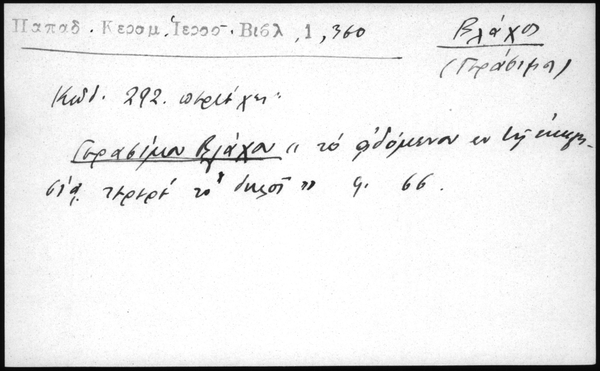 Παπαδ. Κεραμ. Ἱεροσ. Βιβλ, 1, 360
Βλάχος
(Γεράσιμος)
Κώδ. 292. περιέχει"
Γερασίμου Βλάχου " τὸ ᾀδόμενον ἐν τῇ ἐκκλη-
σίᾳ τεριρὲ τὸ δηλοῖ " φ. 66.